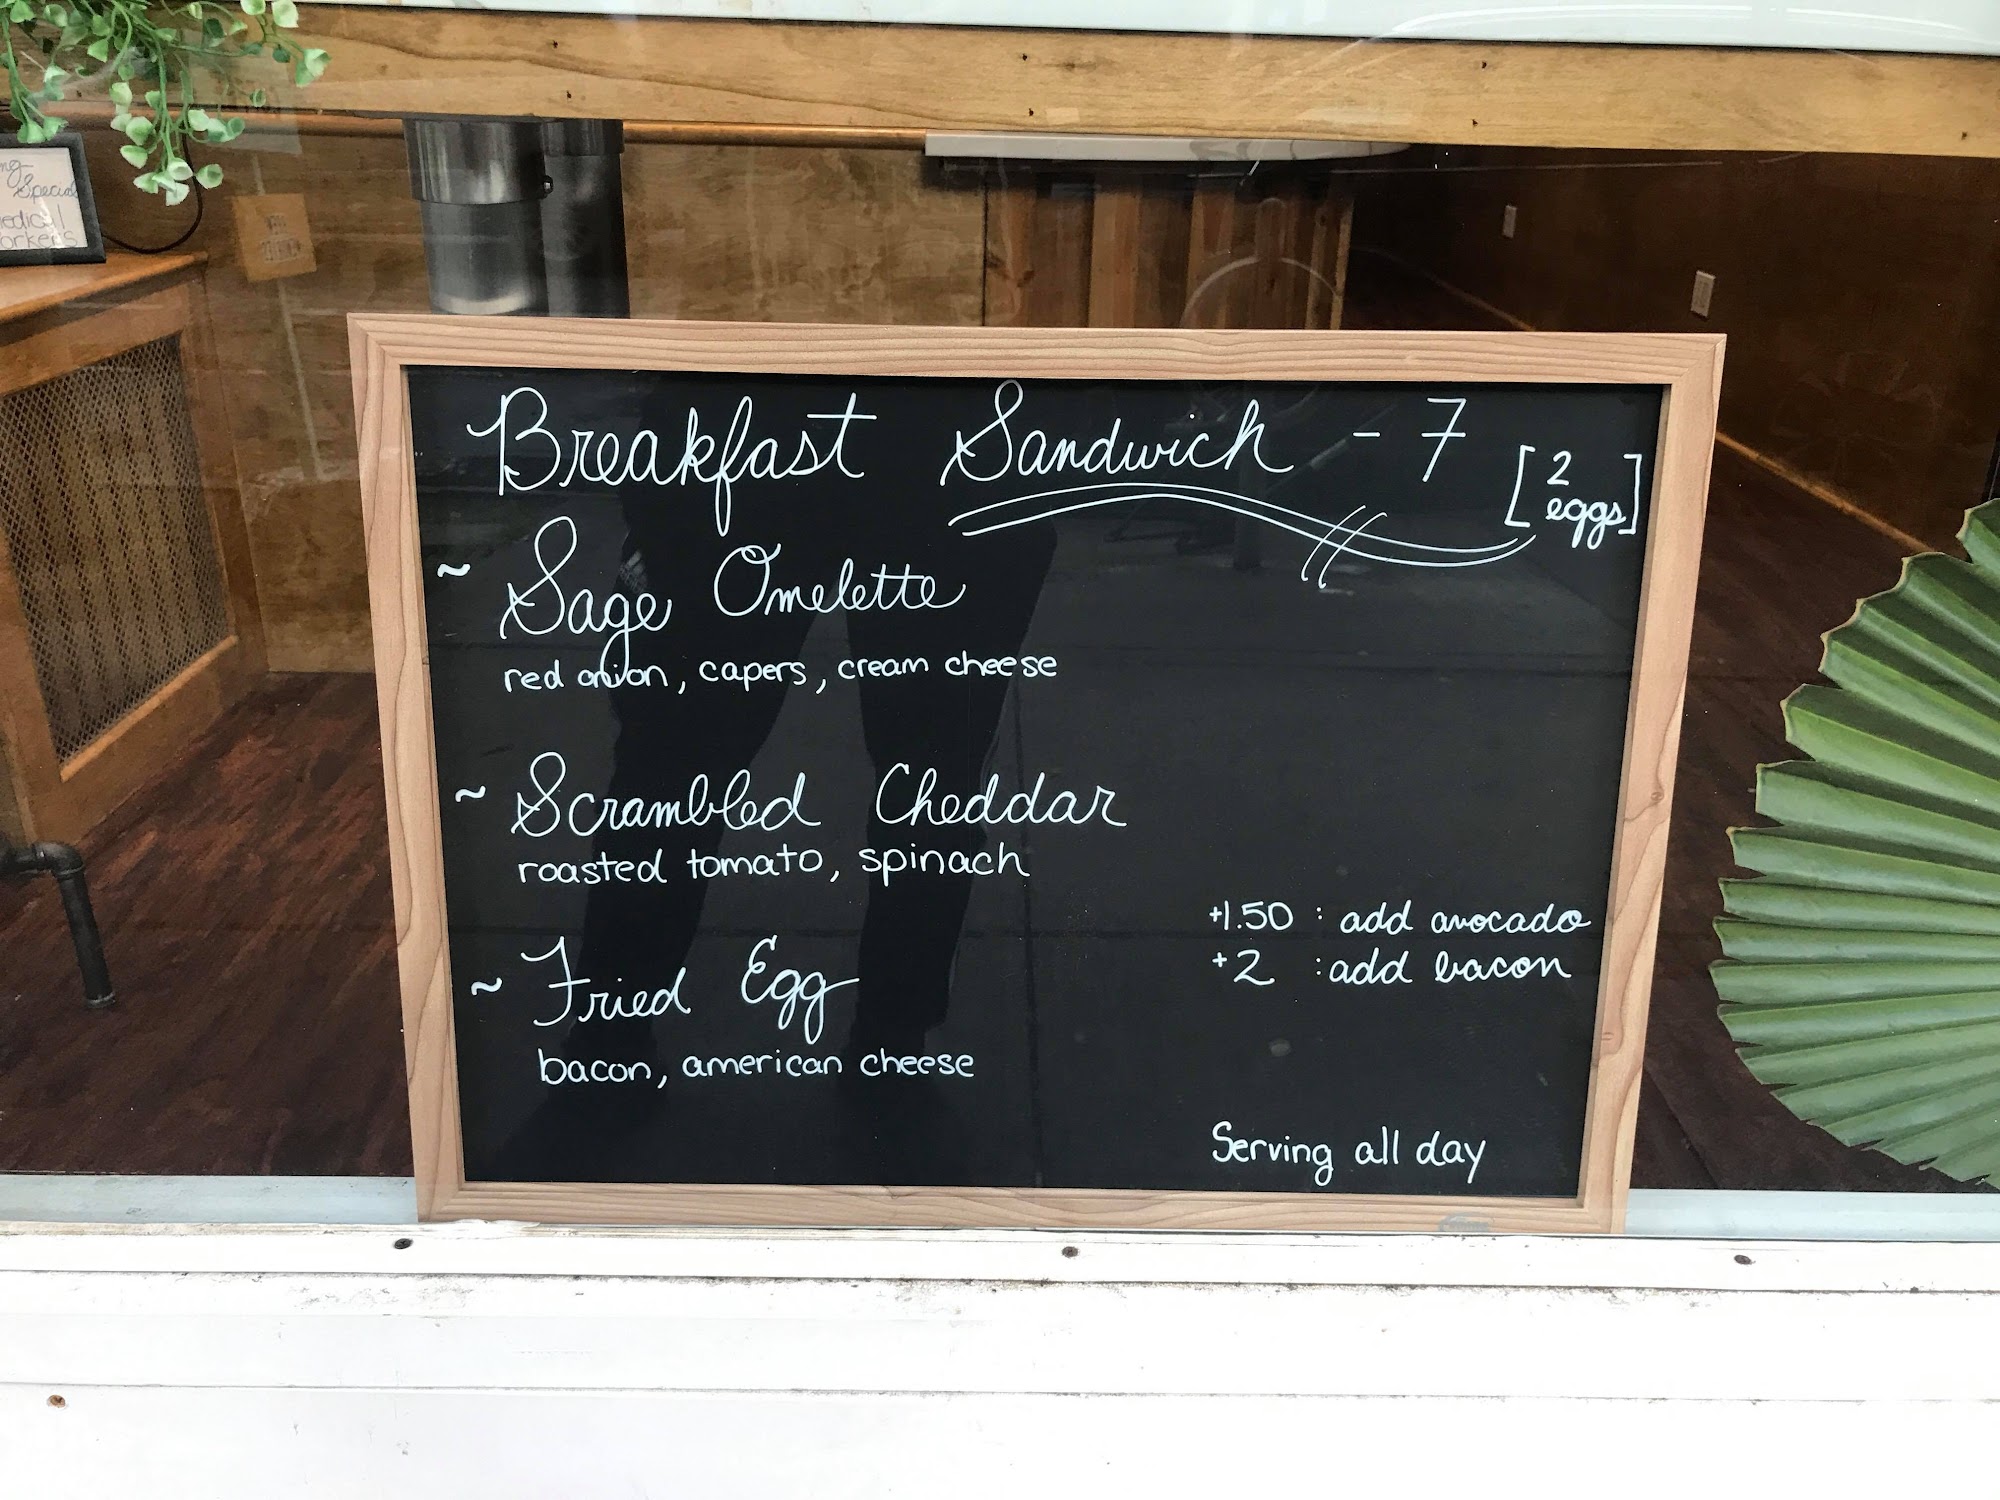 Breakfast Sandwich - 7
[2 eggs]
~ Sage Omelette
red onion, capers, cream cheese
~ Scrambled Cheddar
roasted tomato, spinach
~ Fried Egg
bacon, american cheese
+1.50 : add avocado
+2 : add bacon
Serving all day
Special